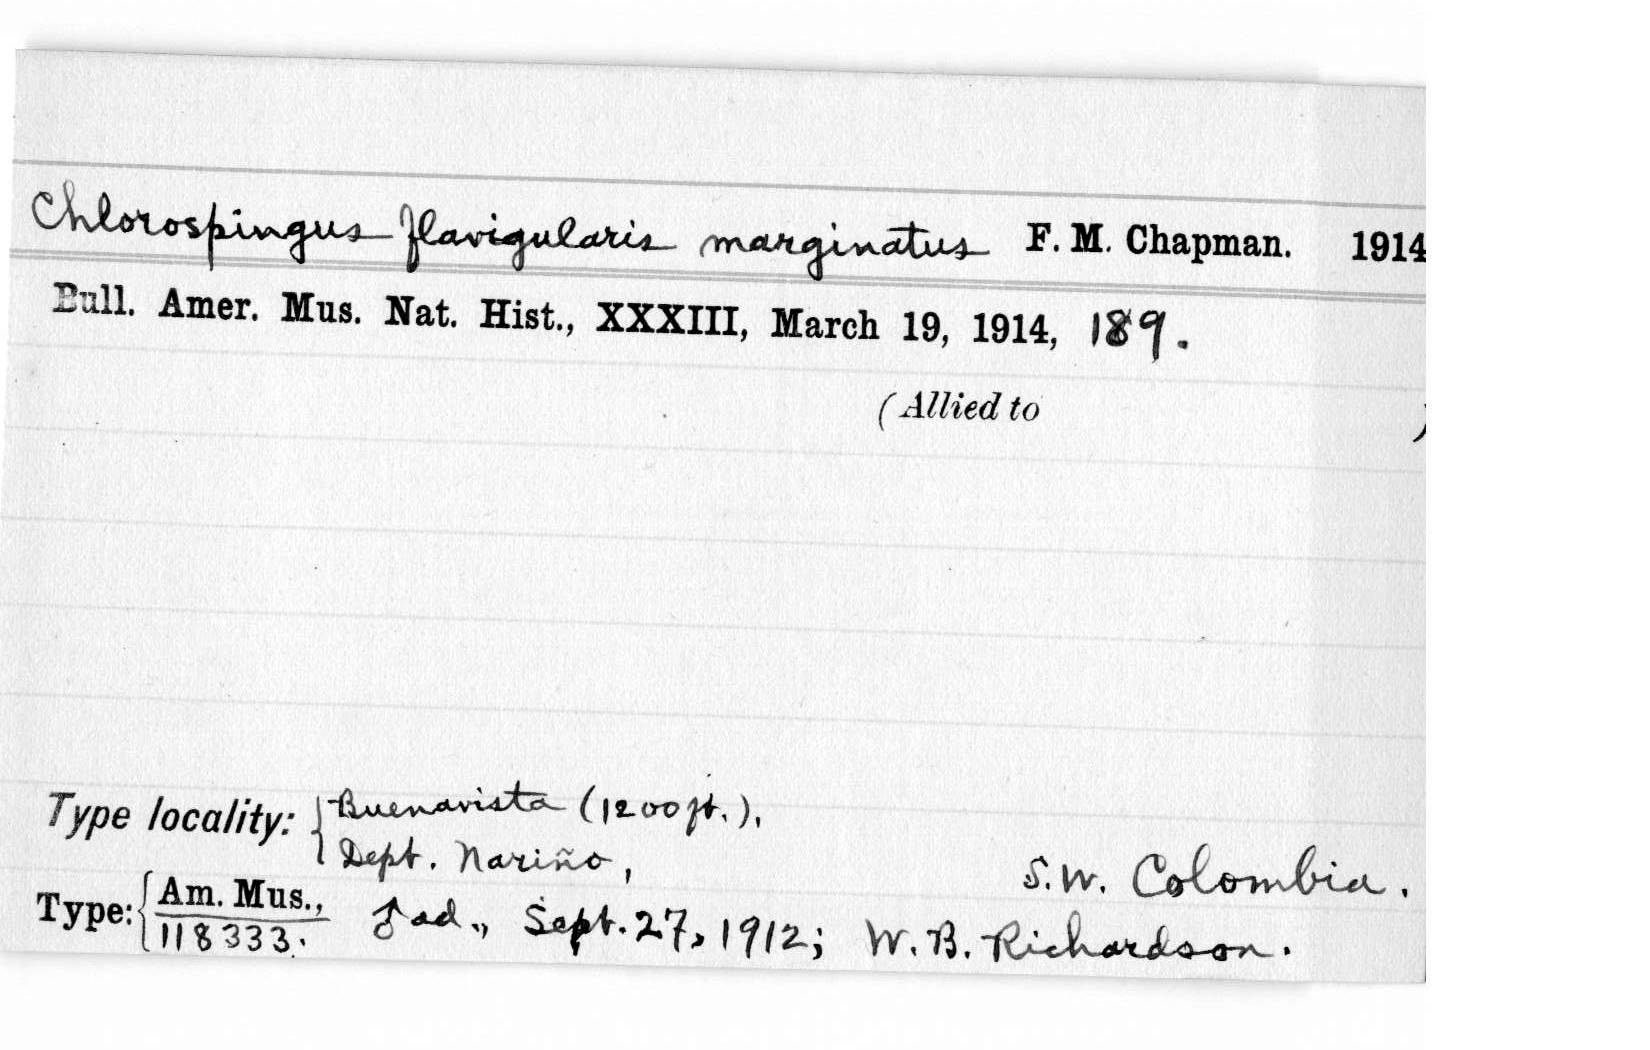 Chlorospingus flavigularis marginatus F. M. Chapman. 1914
Bull. Amer. Mus. Nat. Hist., XXXIII, March 19, 1914, 189.
(Allied to )
Type locality: { Buenavista (1200 ft.),
Dept. Nariño, S.W. Colombia.
Type: { Am. Mus., ♂ ad., Sept. 27, 1912; W. B. Richardson.
118333.